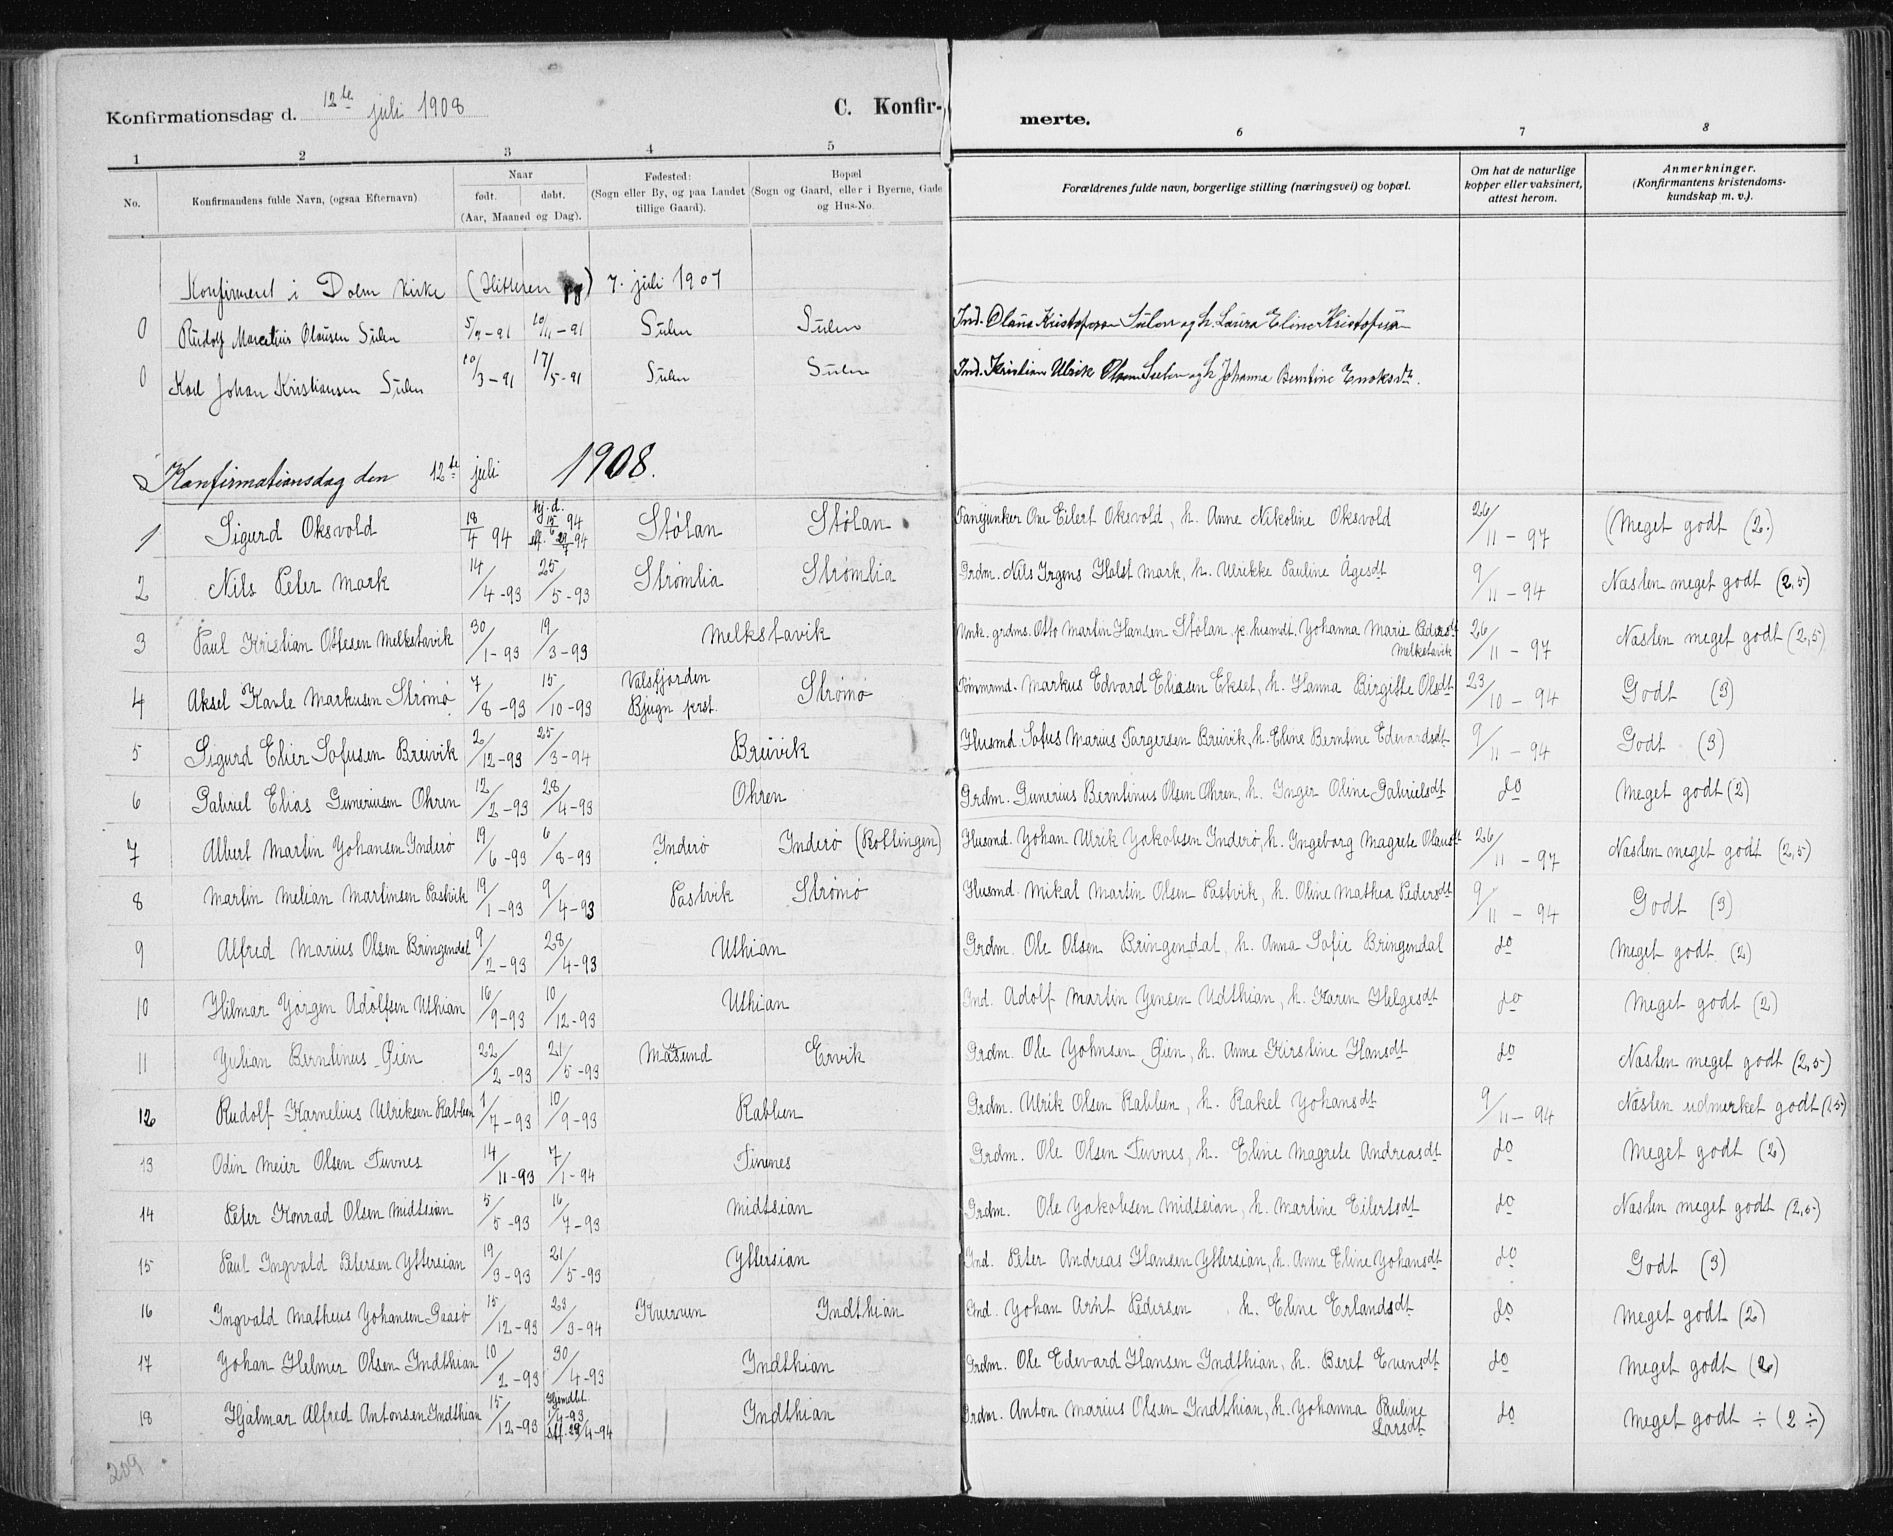 Konfirmationsdag d. 12te juli 1908 C. Konfirmerte.
1 2 3 4 5 6 7 8
No. Konfirmandens fulde Navn, (ogsaa Efternavn) Naar født. døbt. (Aar, Maaned og Dag). Fødested: (Sogn eller By, og paa Landet tillige Gaard). Bopæl (Sogn og Gaard, eller i Byerne, Gade og Hus-No. Forældrenes fulde navn, borgerlige stilling (næringsvei) og bopæl. Om hat de naturlige kopper eller vaksinert, attest herom. Anmerkninger. (Konfirmantens kristendoms-kundskap m. v.).
Konfirmeret i Dolm Kirke (Hitteren pg) 7. juli 1907
0 Rudolf Marcelius Olausen Sulen 5/9-91 10/11-91 Sulen Sulen Ind. Olaus Kristofersen Sulen og h. Laura Eline Kristofersen
0 Karl Johan Kristiansen Sulen 10/3-91 17/5-91 Sulen Sulen Ind. Kristian Ulrik Olsen Sulen og h. Johanna Berntine Enoksdt.
Konfirmationsdag den 12te juli 1908.
1 Sigurd Oksvold 18/4 94 hj. d. 15/6 94 stf. 29/7 94 Stølan Stølan Fanejunker One Eilert Oksvold, h. Anne Nikoline Oksvold 26/11-97 (Meget godt (2.)
2 Nils Peter Mark 14/4-93 25/5-93 Strømlia Strømlia Grdm. Nils Irgens Holst Mark, h. Ulrikke Pauline Ågesdt 9/11-94 Næsten meget godt (2,5)
3 Paul Kristian Ottesen Melkstavik 30/1-93 19/3-93 Melkstavik Unk. grdms. Otto Martin Hansen Stølan p. husmdt. Yohanna Marie Pedersdt Melkstavik 26/11-97 Næsten meget godt (2,5)
4 Aksel Kaale Markusen Strømø 7/8-93 15/10-93 Valsfjorden Bjugn prst. Strømø Tømrmd. Markus Edvard Eliasen Ekset, h. Hanna Birgitte Olsdt 23/10-94 Godt (3)
5 Sigurd Elier Sofusen Breivik 2/12-93 25/3-94 Breivik Husmd. Sofus Marius Torgersen Breivik, h. Eline Berntine Edevardsdt 9/11-94 Godt (3)
6 Gabriel Elias Gunerius­en Ohren 12/2-93 28/4-93 Ohren Grdm. Gunerius Berntinus Olsen Ohren, h. Inger Oline Gabrielsdt do Meget godt (2)
7 Albert Martin Yohansen Inderø 19/6-93 6/8-93 Ynderø Inderø (Rottingen) Husmd. Yohan Ulrik Yakobsen Inderø, h. Ingeborg Magrete Olausdt 26/11-97 Næsten meget godt (2,5)
8 Martin Melian Martinsen Pastvik 19/1-93 9/4-93 Pastvik Strømø Husmd. Mikal Martin Olsen Pastvik, h. Oline Mathea Pedersdt 9/11-94 Godt (3)
9 Alfred Marius Olsen Bringendal 9/2-93 28/4-93 Uthian Grdm. Ole Olsen Bringendal, h. Anna Sofie Bringendal do Meget godt (2)
10 Hilmar Yørgen Adolfsen Uthian 16/9-93 10/12-93 Uthian Ind. Adolf Martin Yensen Udthian, h. Karen Helgesdt do Meget godt (2)
11 Yulian Berntinus Øien 22/2-93 21/5-93 Mausund Ervik Grdm. Ole Yohnsen Øien, h. Anne Kirstine Hansdt do Næsten meget godt (2,5)
12 Rudolf Kornelius Ulriksen Rabben 1/7-93 10/9-93 Rabben Grdm. Ulrik Olsen Rabben, h. Rakel Yohansdt 9/11-94 Næsten udmerket godt (1,5)
13 Odin Meier Olsen Fuvnes 14/11-93 7/1-94 Fuvnes Grdm. Ole Olsen Fuvnes, h. Eline Magrete Andreasdt do Meget godt (2)
14 Peter Konrad Olsen Midtsian 5/5-93 16/7-93 Midtsian Grdm. Ole Yakobsen Midtsian, h. Martine Eilertsdt do Næsten meget godt (2,5)
15 Paul Ingvald Petersen Yttersian 19/3-93 21/5-93 Yttersian Ind. Peter Andreas Hansen Yttersian, h. Anne Eline Yohansdt do Godt (3)
16 Ingvald Matheus Yohansen Gaasø 15/12-93 23/3-94 Kverven Indthian Ind. Yohan Arnt Pedersen h. Eline Erlandsdt do Meget godt (2)
17 Yohan Helmer Olsen Indthian 10/2-93 30/4-93 Yndthian Grdm. Ole Edevard Hansen Yndthian, h. Beret Evensdt do Meget godt (2)
18 Hjalmar Alfred Antonsen Indthian 15/12-93 Hjemdbt. 1/4-93 stf. 29/4-94 Yndthian Grdm. Anton Marius Olsen Yndthian, h. Yohanna Pauline Larsdt do Meget godt ÷ (2 ÷)
209